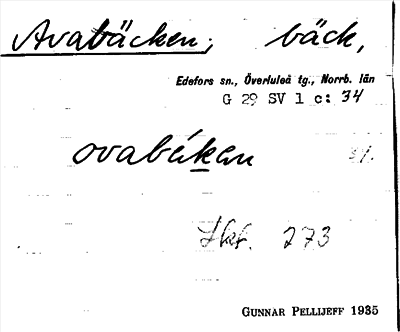 Avabäcken, bäck,
Edefors sn., Överluleå tg., Norrb. län
G 29 SV 1 c: 34
ovabäkan
273
GUNNAR PELLIJEFF 1935